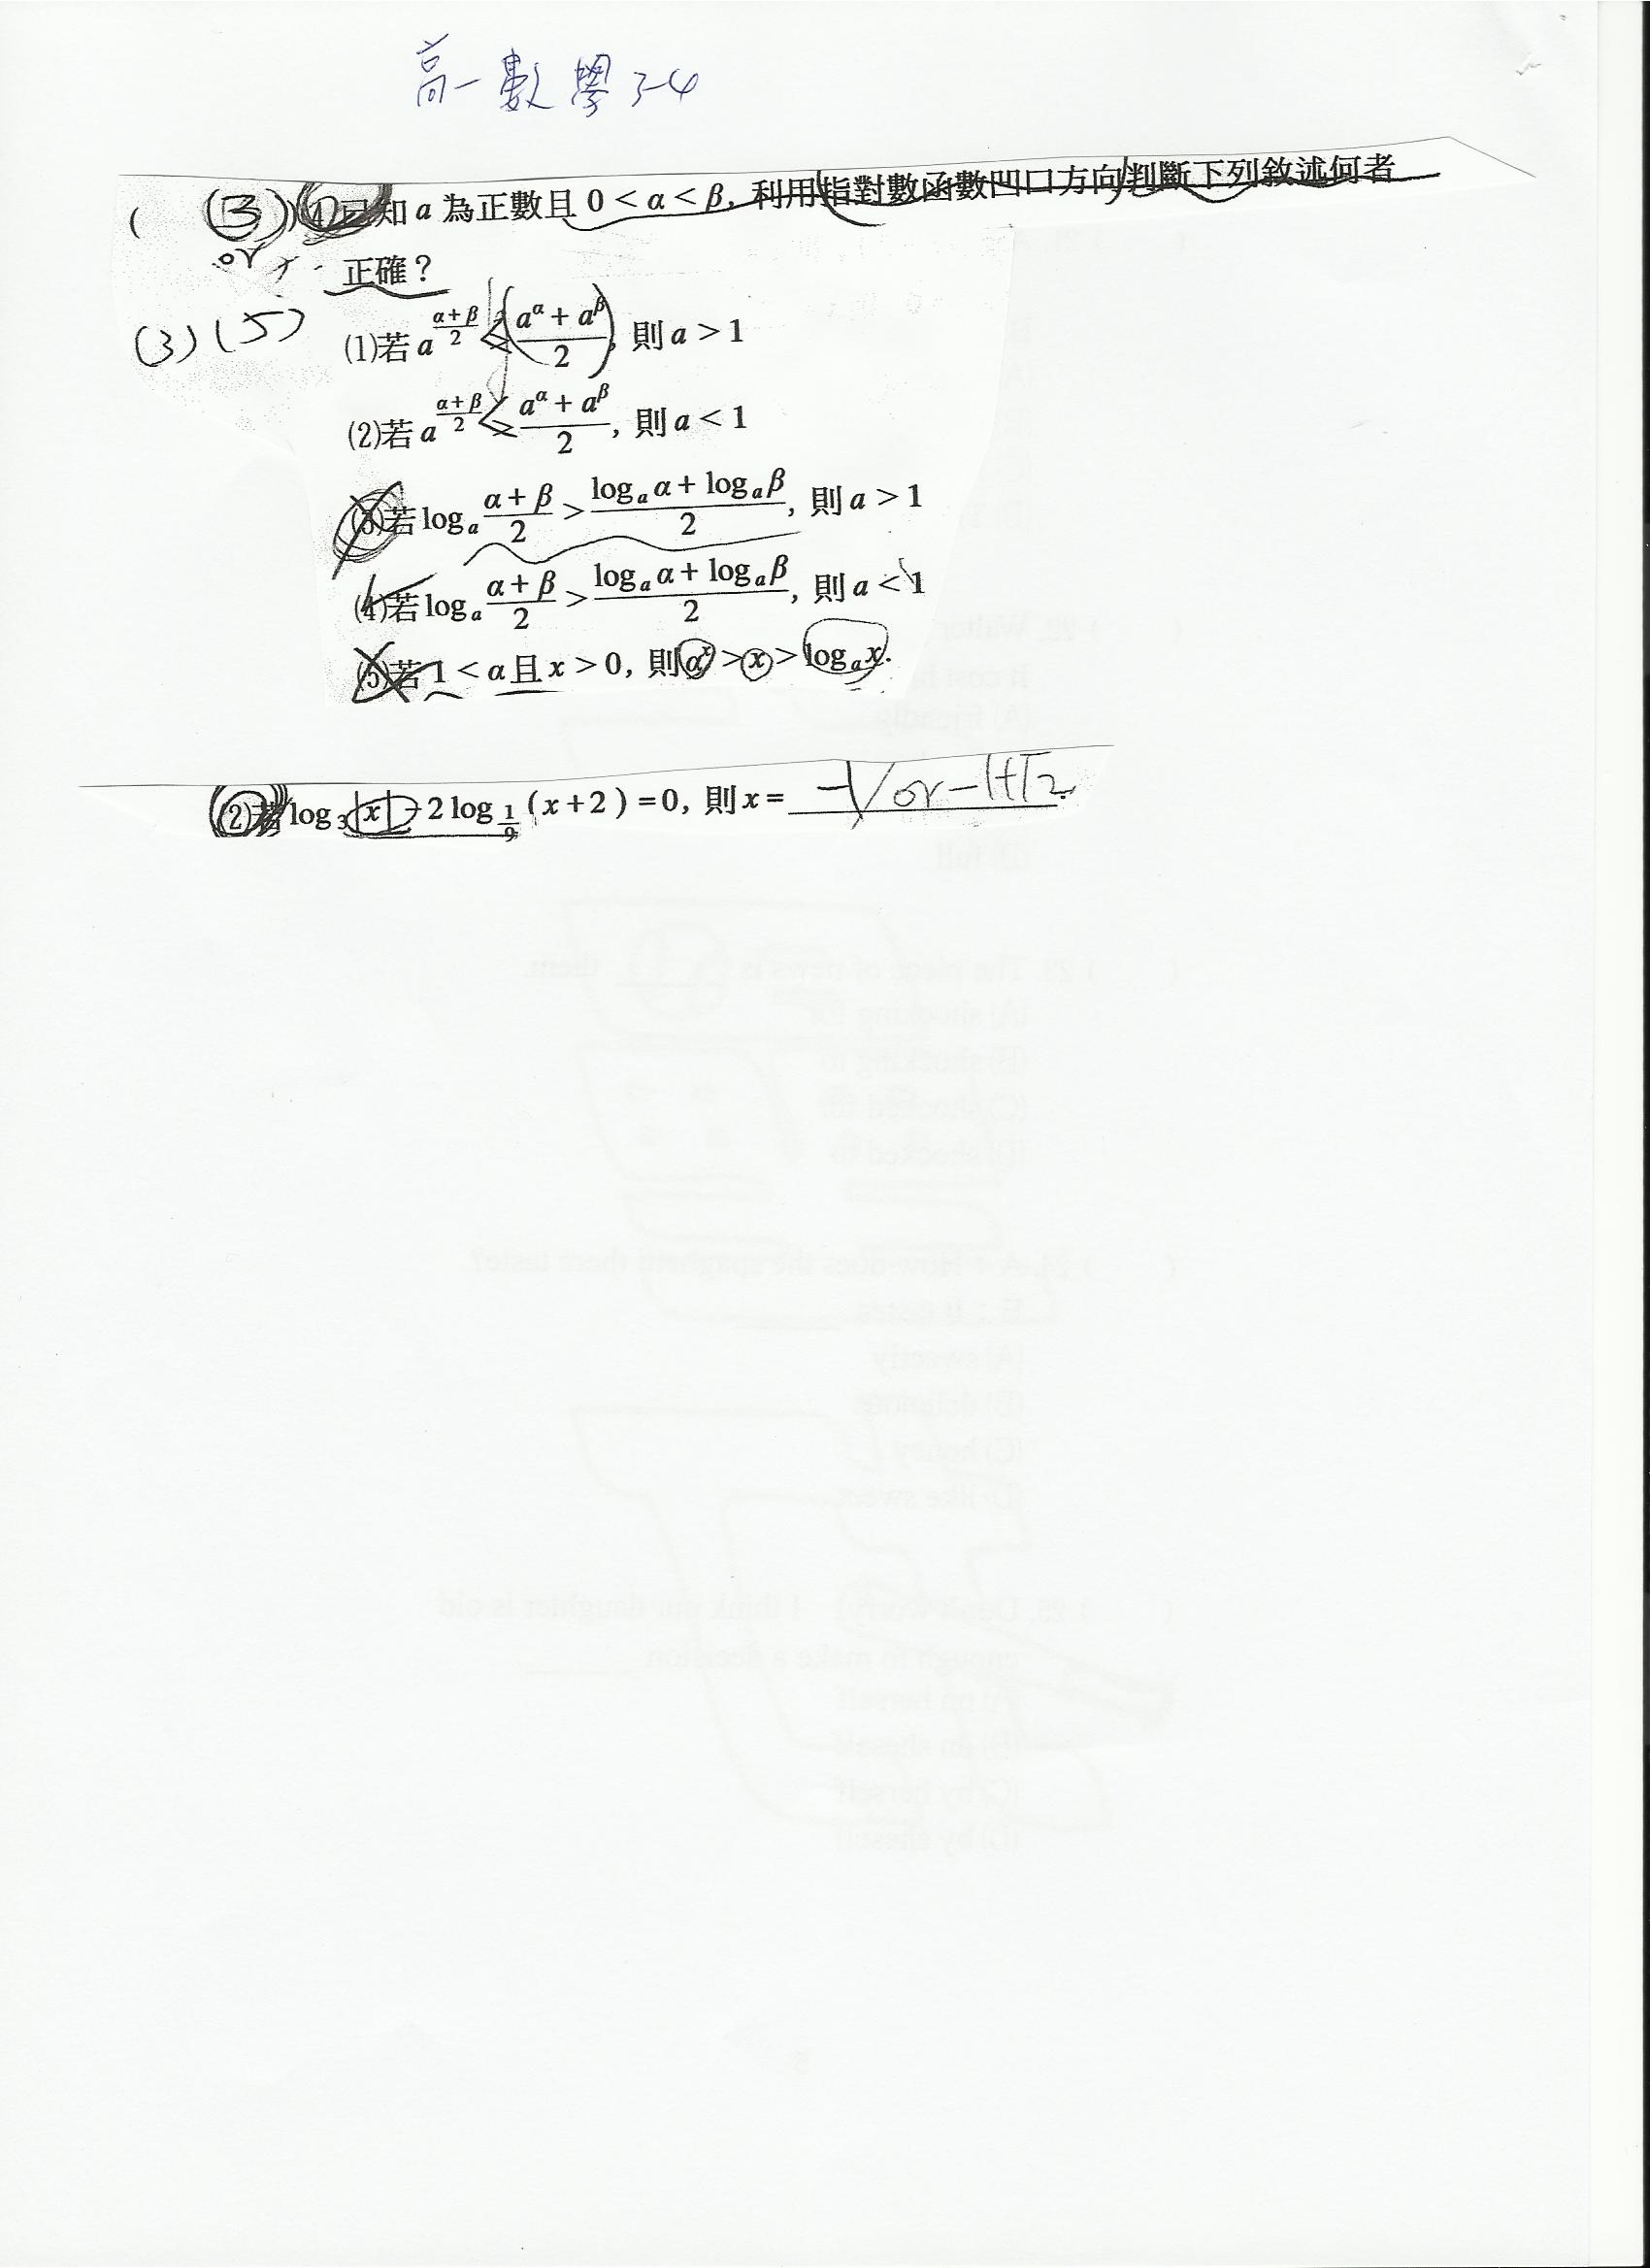 高一數學3-4
( (3) )(4)已知 a 為正數且 0 < α < β, 利用指對數函數凹口方向判斷下列敘述何者
or
正確？
(3)(5)
(1)若 a^{\frac{α+β}{2}} ≤ \frac{a^α + a^β}{2}, 則 a > 1
(2)若 a^{\frac{α+β}{2}} ≤ \frac{a^α + a^β}{2}, 則 a < 1
(3)若 log_a \frac{α+β}{2} > \frac{log_a α + log_a β}{2}, 則 a > 1
(4)若 log_a \frac{α+β}{2} > \frac{log_a α + log_a β}{2}, 則 a < 1
(5)若 1 < α 且 x > 0, 則 α^x > x > log_a x.
(2)若 log_3 |x| - 2 log_{\frac{1}{9}} (x+2) = 0, 則 x = -1 or -1+√2.